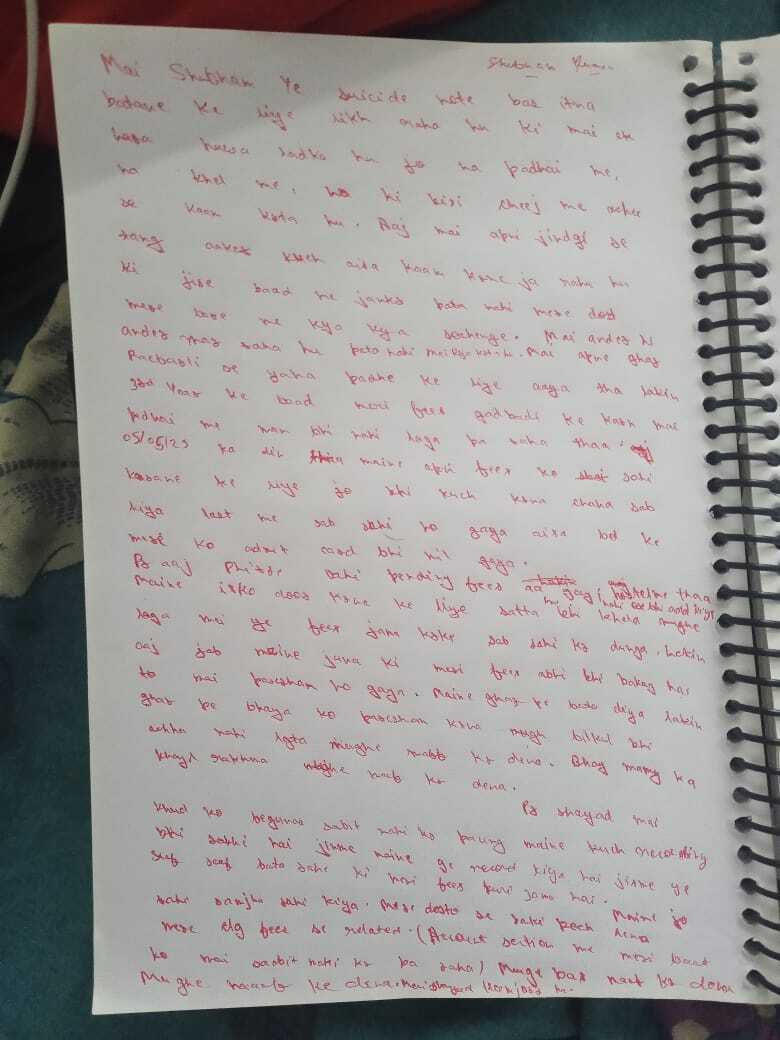 Shubham Kumar
Mai Shubham ye suicide note bas itna
batane ke liye likh raha hu ki mai ek
hara huwa ladka hu jo na padhai me,
na khel me, na hi kisi cheej me achee
se kaam krta hu. Aaj mai apni jindgi se
tang aaker kuch aisa kaam krne ja raha hu
ki jise baad me janke pata nahi mere dost
mere bare me kya kya sochenge. Mai ander hi
ander mar raha hu pata nahi mai kya kru. Mai apne ghar
Raebareli se yaha padhne ke liye aaya tha lakin
3rd year ke baad meri fees gadbadi ke karn mai
pdhai me man bhi nahi laga pa raha thaa.
05/05/23 ka din maine apni fees ko sahi
karane ke liye jo bhi kuch krna chaha sab
kiya last me sab sahi ho gaya aisa bol ke
mere ko admit card bhi mil gaya.
Ps aaj phirse wahi pending fees aa gayi thaa
maine isko door krne ke liye satta bhi khela mughe
laga mai ye fees jama krke sab sahi kr dunga. Lekin
aaj jab maine jana ki meri fees abhi bhi bakay hai
to mai pareshan ho gaya. Maine ghar pe bata diya lakin
ghar pe bhaya ko pareshan krna mugh bilkul bhi
achha nahi lgta mughe maaf kr dena. Bhay mamy ka
khayl rakhna mughe maaf kr dena.
Ps shayad mai
khud ko begunaa sabit nahi kr paung maine kuch recording
bhi rakhi hai jisme maine ye record kiya hai jisme ye
saaf saaf bata rahe ki meri fees puri jama hai.
Maine jo
sahi samjha wahi kiya. Mere dosto se baki puch lena
mere clg fees se related. (Account section me meri baat
ko mai saabit nahi kr pa raha) Mughe bas maaf kr dena
Mughe maaf kr dena.